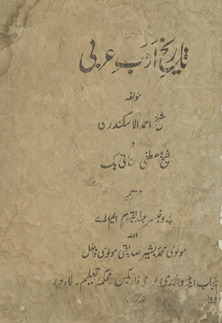 تاریخ ادب عربی
مؤلفہ
شیخ احمد الاسکندری
و
شیخ مصطفیٰ عنانی بک
مترجمہ
پروفیسر عبدالقیوم ایم اے
اور
مولوی محمد بشیر صدیقی مولوی فاضل
پنجاب ایڈوائزری بورڈ فار بکس محکمہ تعلیم۔ لاہور